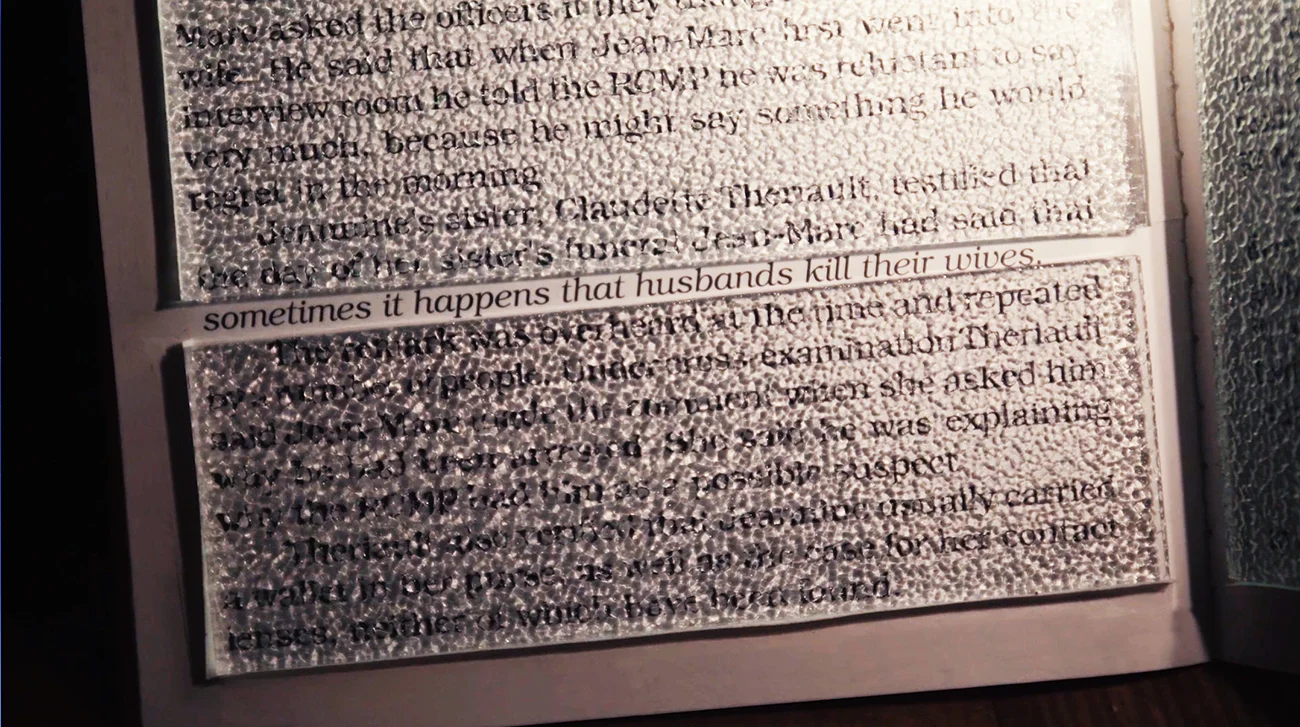 Marc asked the officers if they
wife. He said that when Jean-Marc first went into the
interview room he told the RCMP he was reluctant to say
very much, because he might say something he would
regret in the morning
Jeannine's sister, Claudette Theriault, testified that
the day of her sister's funeral Jean-Marc had said that
sometimes it happens that husbands kill their wives.
The remark was overheard at the time and repeated
by a number of people. Under cross-examination Theriault
said Jean-Marc made the comment when she asked him
why he had been arrested. She said he was explaining
why the RCMP had him as a possible suspect.
Theriault also testified that Jeannine usually carried
a wallet in her purse, as well as the case for her contact
lenses, neither of which have been found.